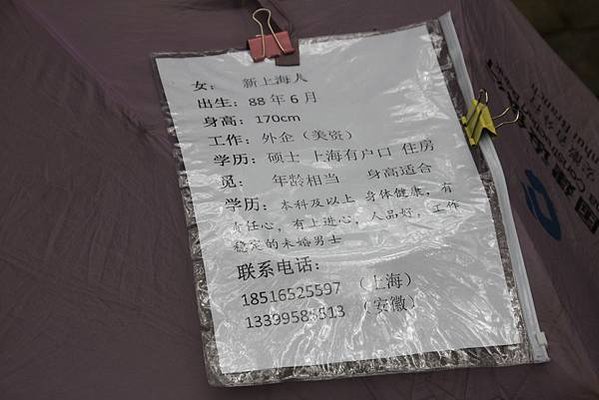 女： 新上海人
出生：88 年 6 月
身高：170cm
工作：外企（美资）
学历：硕士 上海有户口 住房
觅： 年龄相当 身高适合
学历：本科及以上 身体健康，有
责任心，有上进心，人品好，工作
稳定的未婚男士
联系电话：
18516525597 （上海）
（安徽）